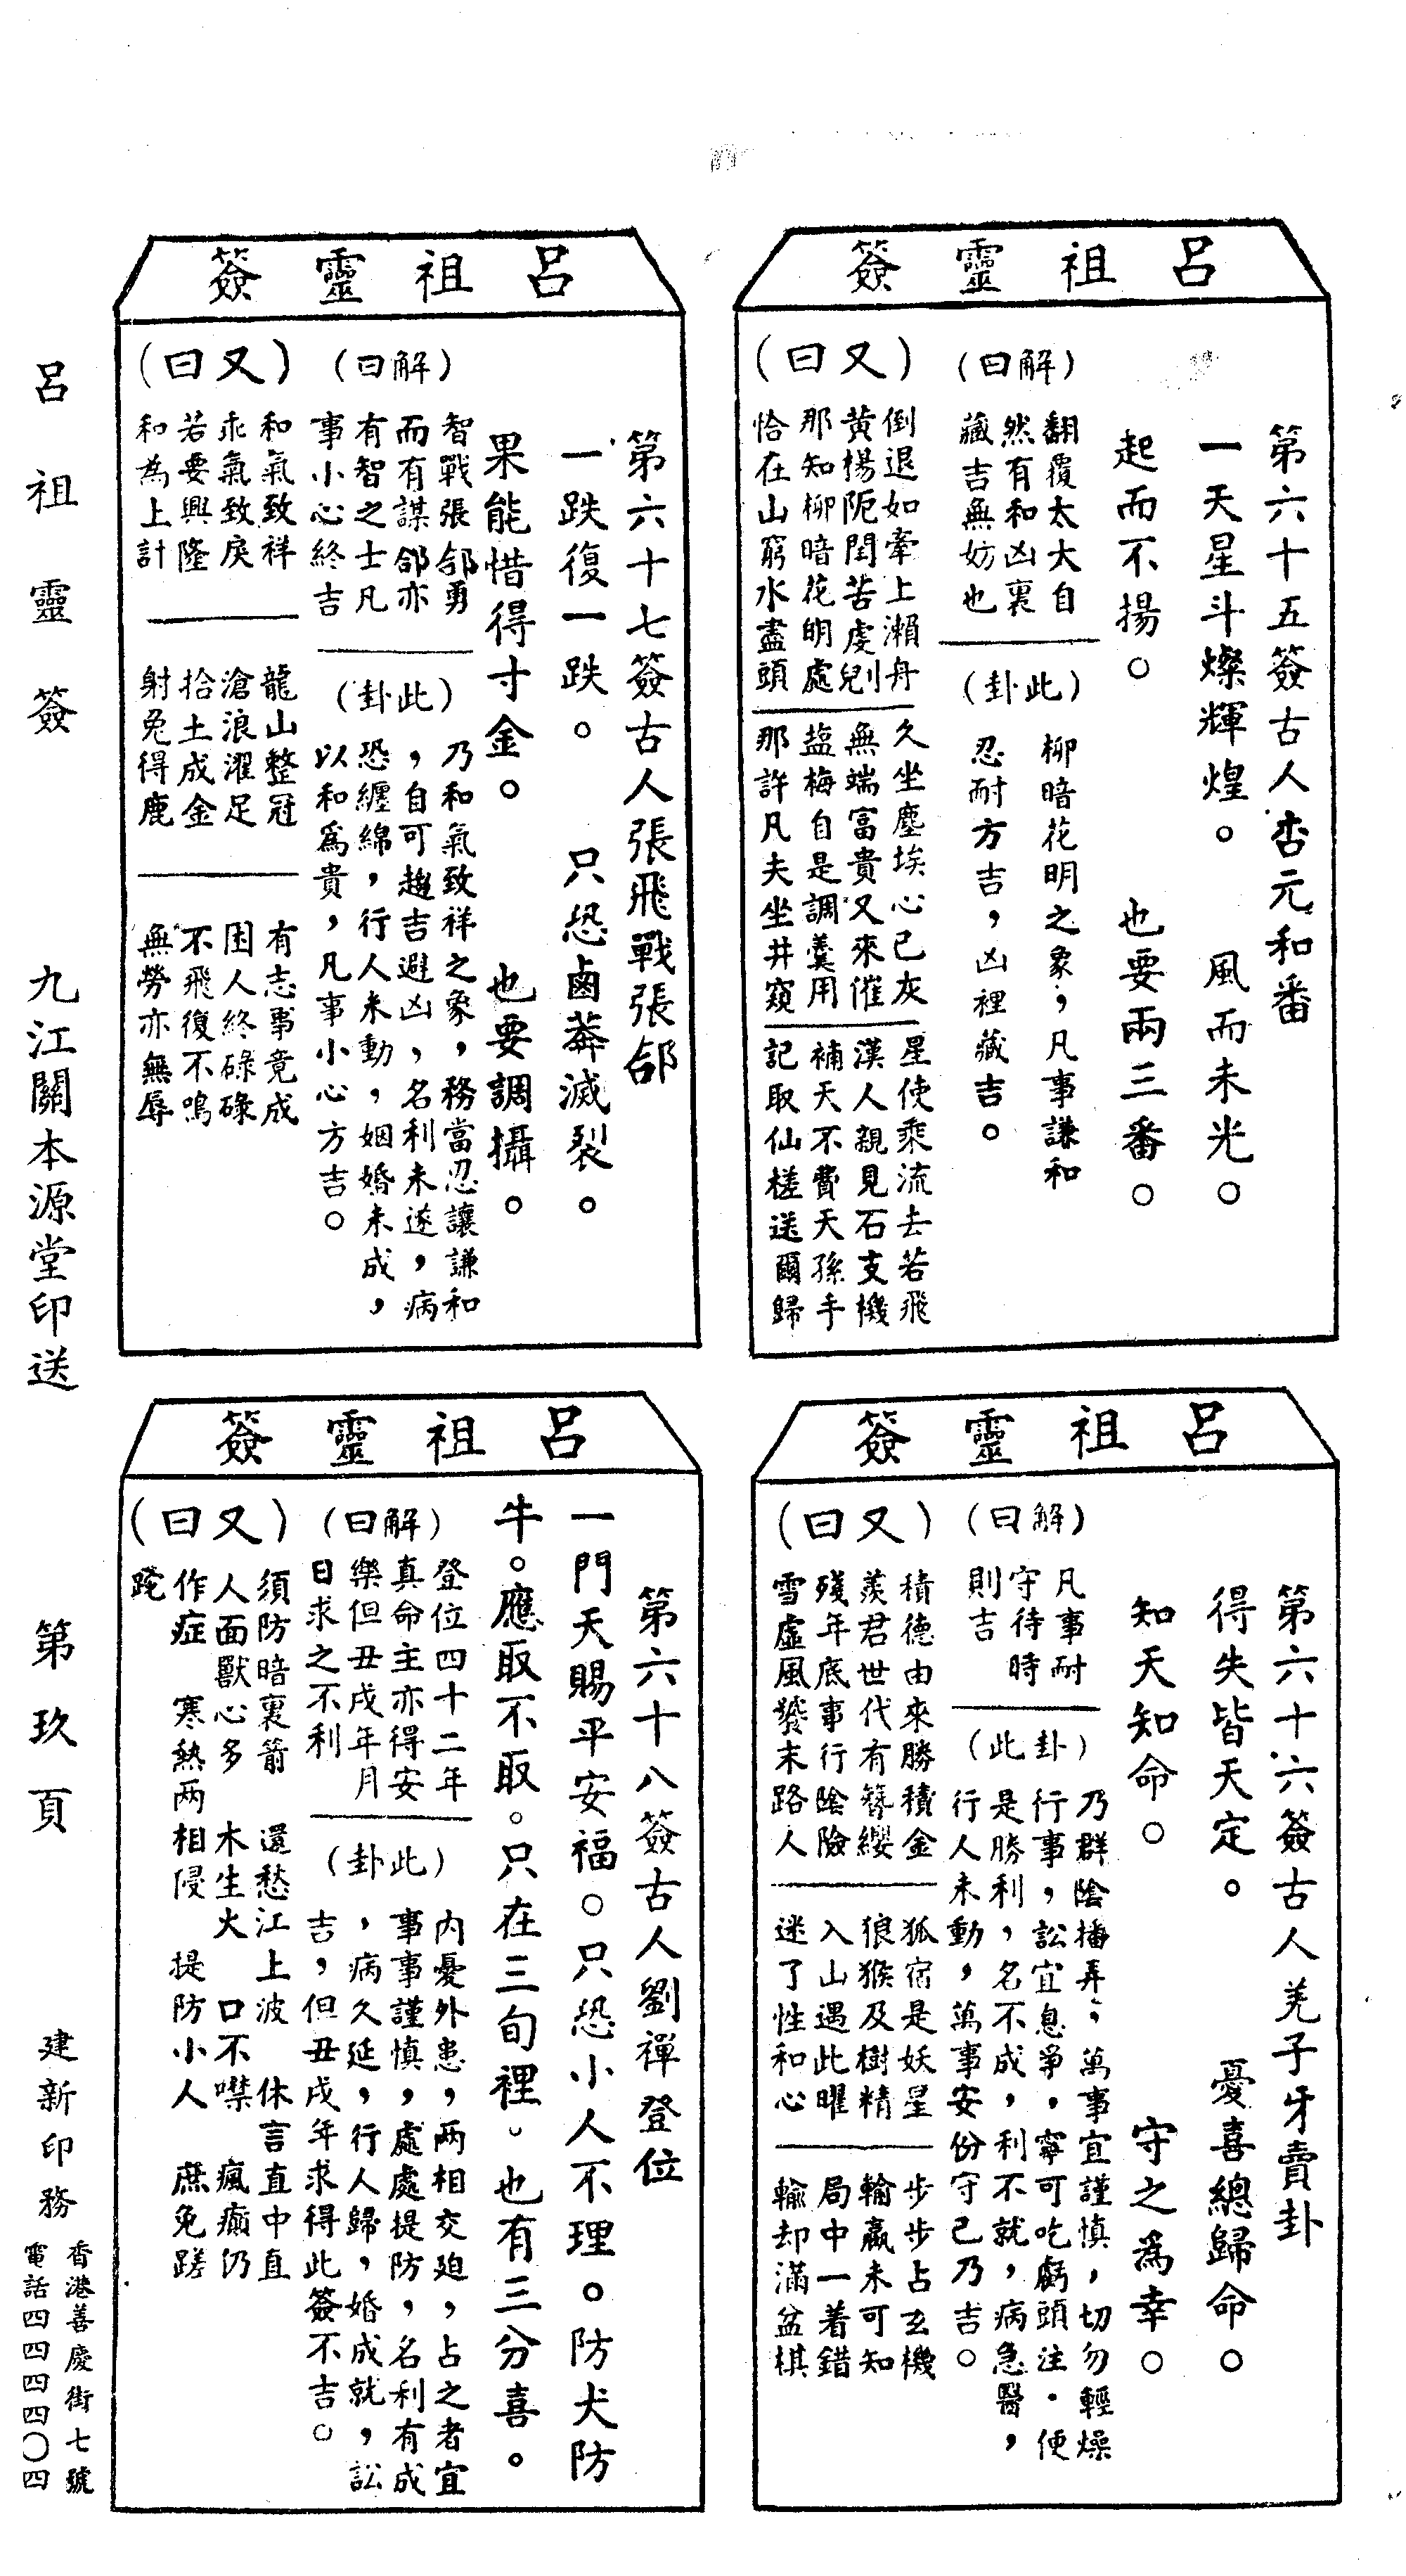 呂祖靈簽
第六十五簽古人杏元和番
一天星斗燦輝煌。　風而未光。
起而不揚。　也要兩三番。
(解曰)
翻覆太大自
然有和凶裏
藏吉無妨也
(此卦)
柳暗花明之象，凡事謙和
忍耐方吉，凶裡藏吉。
(又曰)
倒退如牽上瀨舟
黃楊阨閏苦虔剉
那知柳暗花明處
恰在山窮水盡頭
久坐塵埃心已灰
無端富貴又來催
盐梅自是調羹用
那許凡夫坐井窺
星使乘流去若飛
漢人親見石支機
補天不費天孫手
記取仙槎送爾歸
呂祖靈簽
第六十六簽古人羌子牙賣卦
得失皆天定。　憂喜總歸命。
知天知命。　守之為幸。
(解曰)
凡事耐
守待時
則吉
(此卦)
乃群陰播弄，萬事宜謹慎，切勿輕燥
行事，訟宜息爭，寧可吃虧頭注．便
是勝利，名不成，利不就，病急醫，
行人未動，萬事安份守己乃吉。
(又曰)
積德由來勝積金
羨君世代有簪纓
殘年底事行陰險
雪虛風發末路人
狐宿是妖星
狼猴及樹精
入山遇此曜
迷了性和心
步步占玄機
輸贏未可知
局中一着錯
輸却滿盆棋
呂祖靈簽
第六十七簽古人張飛戰張郃
一跌復一跌。　只恐鹵莽滅裂。
果能惜得寸金。　也要調攝。
(解曰)
智戰張郃勇
而有謀郃亦
有智之士凡
事小心終吉
(此卦)
乃和氣致祥之象，務當忍讓謙和
，自可趨吉避凶，名利未遂，病
恐纏綿，行人未動，姻婚未成，
以和爲貴，凡事小心方吉。
(又曰)
和氣致祥
乖氣致戾
若要興隆
和為上計
龍山整冠
滄浪濯足
拾土成金
射兔得鹿
有志事竟成
困人終碌碌
不飛復不鳴
無勞亦無辱
呂祖靈簽
第六十八簽古人劉禪登位
一門天賜平安福。只恐小人不理。防犬防
牛。應取不取。只在三旬裡。也有三分喜。
(解曰)
登位四十二年
真命主亦得安
樂但丑戌年月
日求之不利
(此卦)
內憂外患，两相交迫，占之者宜
事事謹慎，處處提防，名利有成
，病久延，行人歸，婚成就，訟
吉，但丑戌年求得此簽不吉。
(又曰)
須防暗裏箭　還愁江上波　休言直中直
人面獸心多　木生火　口不噤　瘋癲仍
作症　寒熱两相侵　提防小人　庶免蹉
跎
呂祖靈簽
九江關本源堂印送
第玖頁
建新印務
香港善慶街七號
電話四四四四〇四